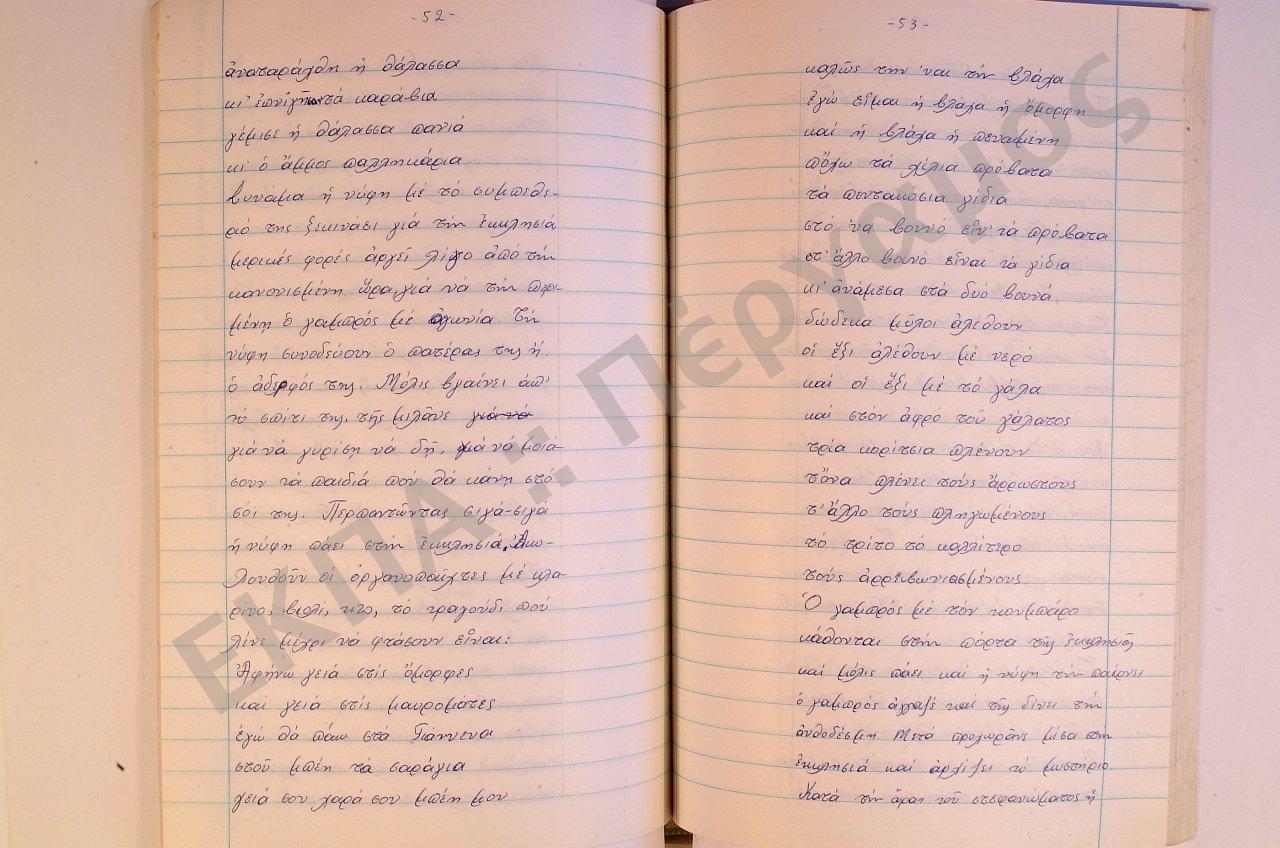 -52-
ἀναταράχθη ἡ θάλασσα
κι' ἐπνίγηταν τά καράβια
γέμισε ἡ θάλασσα πανιά
κι' ὁ ἄμμος παλληκάρια.
Συνάμα ἡ νύφη μέ τό συμπεθε-
ριό της ξεκινάει γιά τήν ἐκκλησιά
μερικές φορές ἀργεῖ λίγο ἀπό τήν
κανονισμένη ὥρα, γιά νά τήν περι-
μένη ὁ γαμπρός μέ ἀγωνία. Τή
νύφη συνοδεύουν ὁ πατέρας της ἤ.
ὁ ἀδερφός της. Μόλις βγαίνει ἀπ'
τό σπίτι της, τῆς μιλᾶνε γιά νά
γιά νά γυρίση νά δῆ, γιά νά μοιά-
σουν τά παιδιά πού θά κάνη στό
σόι της. Περπαντώντας σιγά-σιγά
ἡ νύφη πάει στήν ἐκκλησιά. Ἀκο-
λουθοῦν οἱ ὀργανοπαῖχτες μέ κλα-
ρίνο, βιολί, κτο, τό τραγούδι πού
λένε μέχρι νά φτάσουν εἶναι:
Ἀφήνω γειά στίς ὄμορφες
καί γειά στίς μαυρομάτες
ἐγώ θά πάω στα Γιάννενα
στοῦ μπέη τά σαράγια
γειά σου χαρά σου μπέη μου
-53-
καλῶς την 'ναι τήν βλάχα
ἐγώ εἶμαι ἡ βλάχα ἡ ὄμορφη
καί ἡ βλάχα ἡ πεναμένη
πὄχω τά χίλια πρόβατα
τά πεντακόσια γίδια
στό 'να βουνό εἶν' τά πρόβατα
στ' ἄλλο βουνό εἶναι τά γίδια
κι' ἀνάμεσα στά δυό βουνά
δώδεκα μῦλοι ἀλέθουν
οἱ ἕξι ἀλέθουν μέ νερό
καί οἱ ἕξι μέ τό γάλα
καί στόν ἀφρό τοῦ γάλατος
τρία κορίτσια πλένουν
τὄνα πλένει τούς ἄρρωστους
τ' ἄλλο τούς πληγωμένους
τό τρίτο τό καλλίτερο
τούς ἀρρεβωνιασμένους.
Ὁ γαμπρός μέ τόν κουμπάρο
κάθονται στήν πόρτα τῆς ἐκκλησιᾶς
καί μόλις πάει καί ἡ νύφη τήν παίρνει
ὁ γαμπρός ἀγκαζέ καί τῆς δίνει τήν
ἀνθοδέσμη. Μετά προχωρᾶνε μέσα στήν
ἐκκλησιά καί ἀρχίζει τό μυστήριο.
Κατά τήν ὥραν τοῦ στεφανώματος ἡ
ΕΚΠΑ :: Πέργαμος